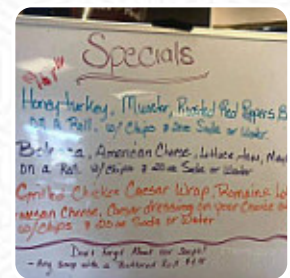 Specials
Honey turkey, Munster, Roasted Red Peppers
on a Roll. w/ Chips 20oz Soda or Water
Bologna, American Cheese, Lettuce,
on a Roll w/ chips 20oz Soda or Water
Grilled Chicken Caesar Wrap, Romaine
Cheese, Caesar dressing on your Choice
w/ Chips 20oz Soda or Water
Don't forget About our Soups!
- Any Soup with a Buttered Roll